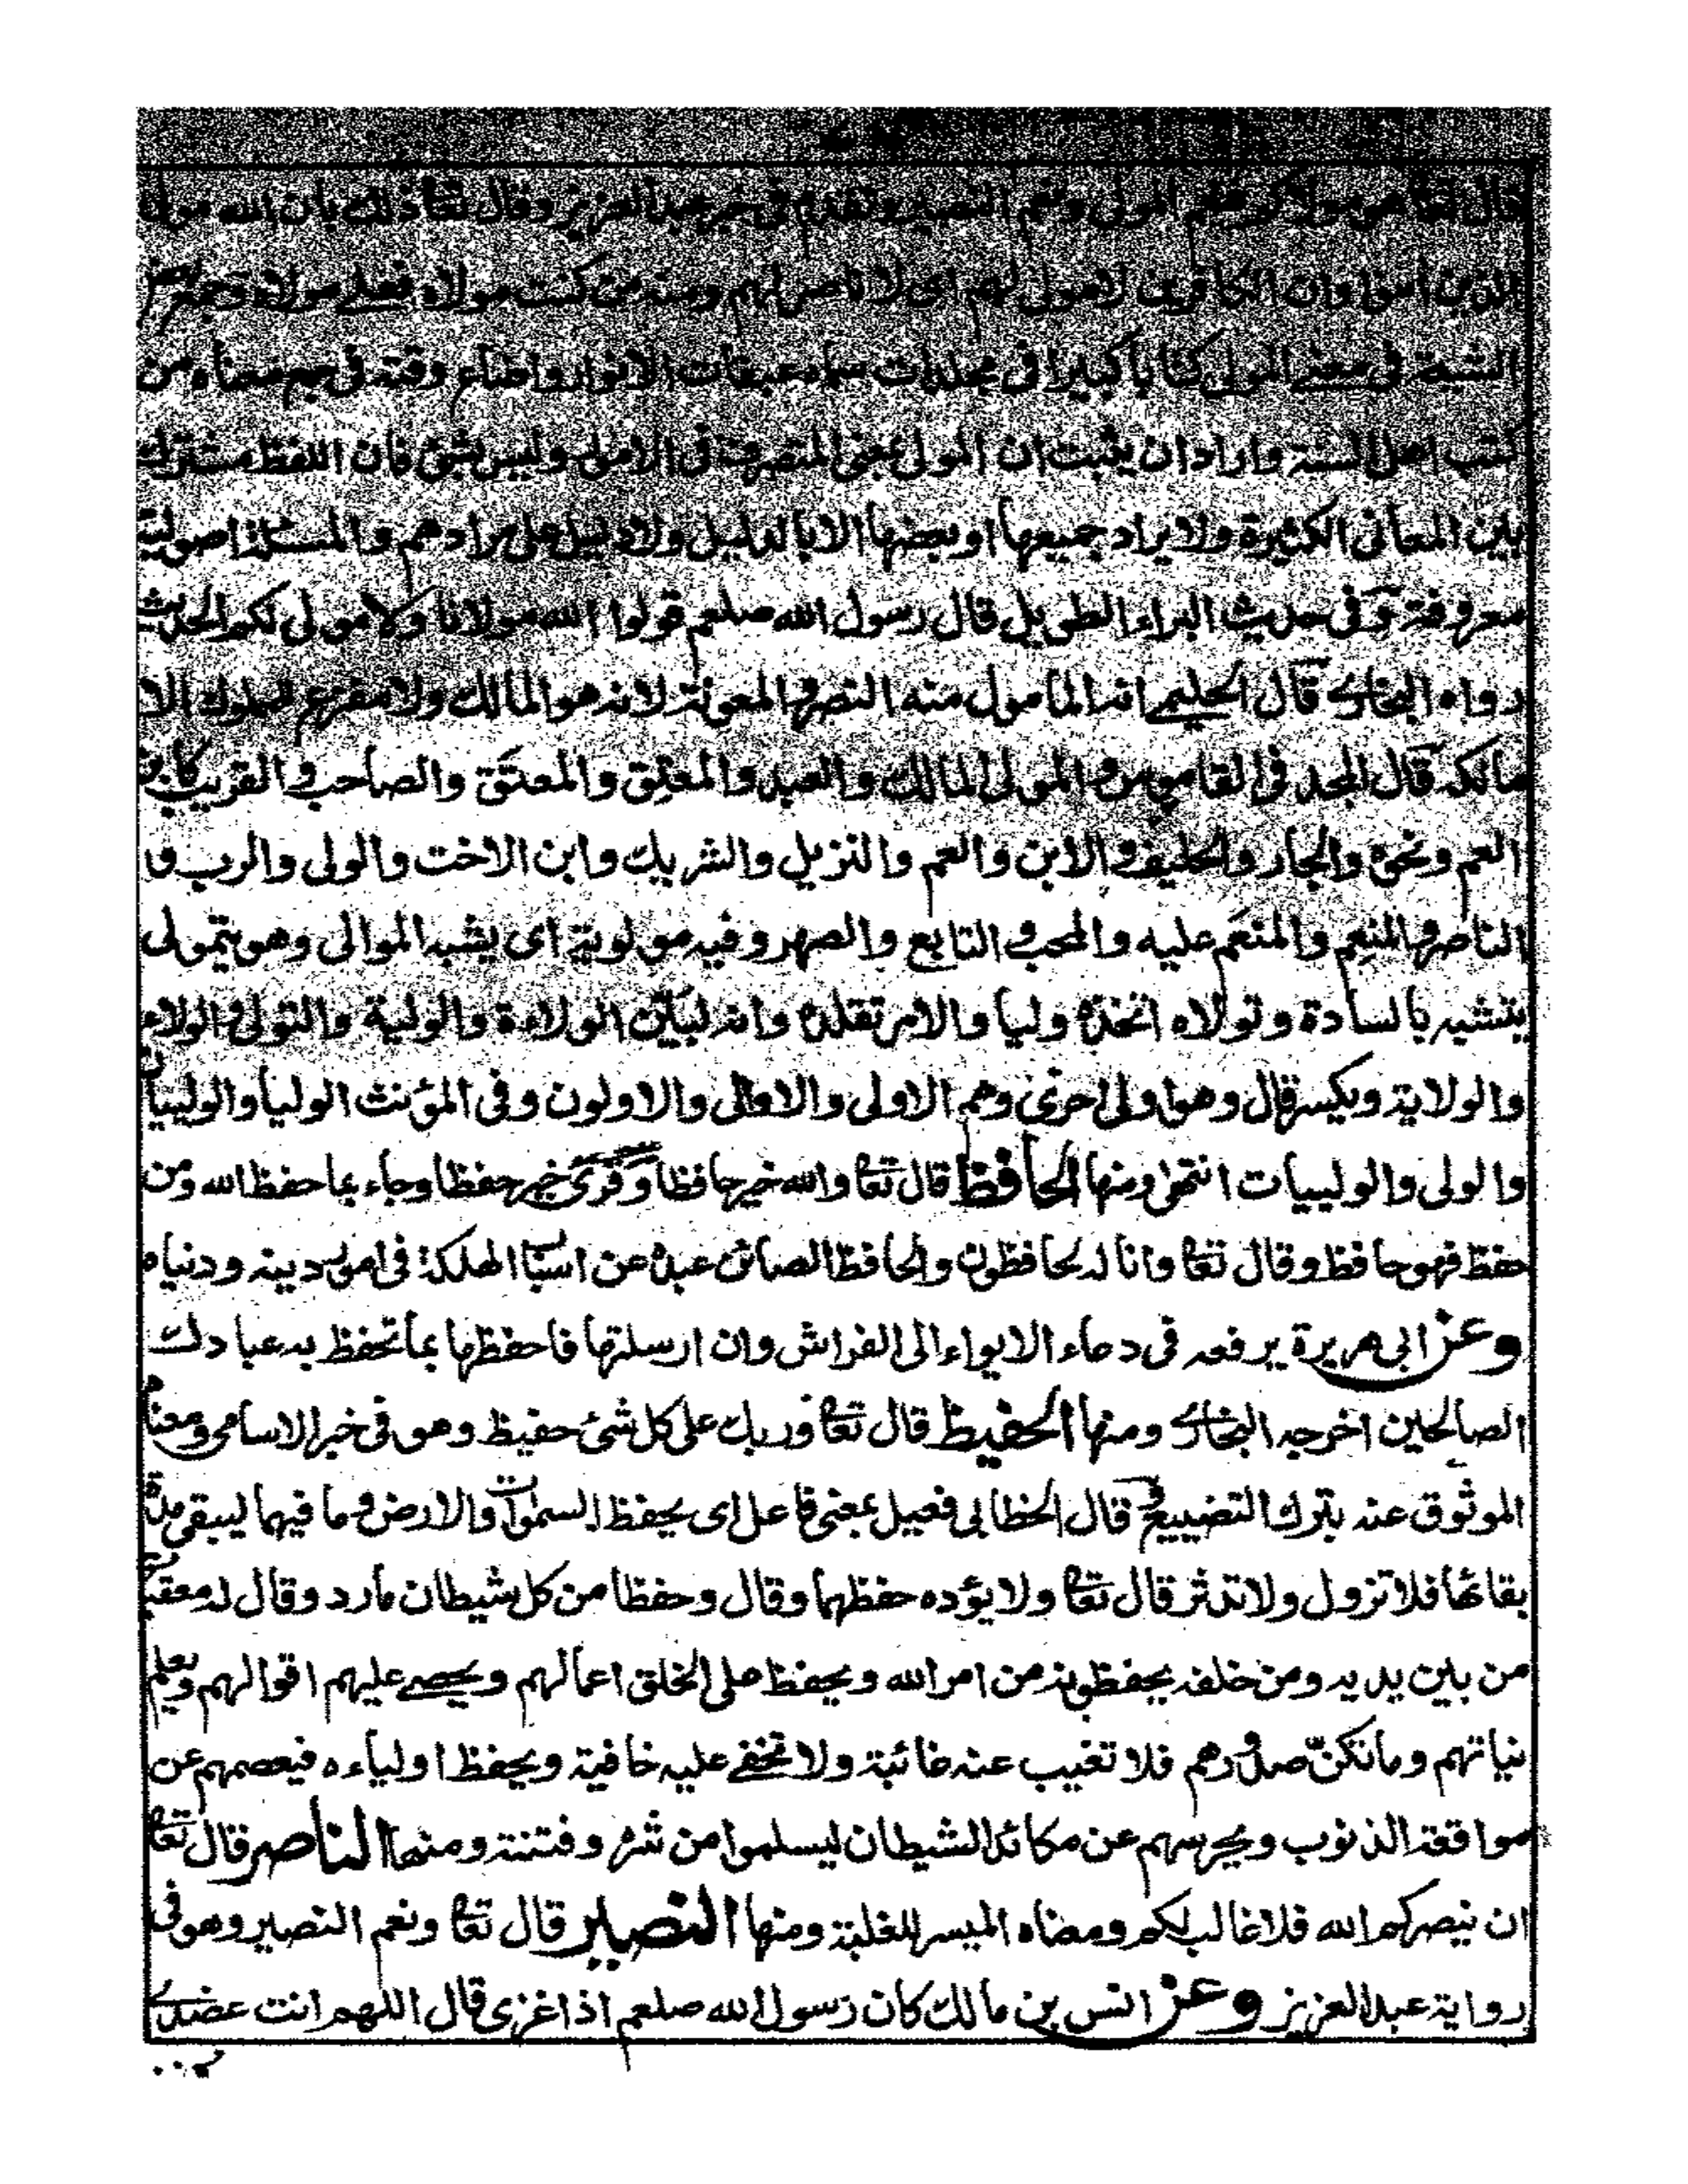 قال تعالى هو مولاكم فنعم المولى ونعم النصير وتقدم فى خبر عبد العزيز وقال تعالى ذلك بان الله مولى
الذين امنوا وان الكافرين لا مولى لهم اى لا ناصر لهم ومنه من كنت مولاه فعلى مولاه وجمع بعض
الشيعة فى معنى المولى كتابا كبيرا فى مجلدات سماه عبقات الانوار واضاع وقته فى جمع معناه من
كتب اهل السنة واراد ان يثبت ان المولى بمعنى المتصرف فى الامور وليس بشئ فان اللفظ مشترك
بين المعانى الكثيرة ولا يراد جميعها او بعضها الا بالدليل ولا دليل على مرادهم والمسئلة اصولية
معروفة وفى حديث البراء الطويل قال رسول الله صلعم قولوا الله مولانا ولا مولى لكم الحديث
رواه البخارى قال الحليمى انه المامول منه النصر والمعونة لانه هو المالك ولا مفزع للملوك الا
مالكه قال المجد فى القاموس والمولى المالك والعبد والمعتِق والمعتَق والصاحب والقريب كابن
العم ونحوه والجار والحليف والابن والعم والنزيل والشريك وابن الاخت والولى والرب و
الناصر والمنعِم والمنعَم عليه والمحب والتابع والصهر وفيه مولوية اى يشبه الموالى وهو يتمولى
يتشبه بالسادة وتولاه اتخذه وليا والامر تقلده وانه لبيّن الولاءة والولية والتولى والولاء
والولاية ويكسر قال وهو اولى احرى وهم الاولى والاوالى والاولون وفى المؤنث الوليا والولييان
والولى والولييات انتهى ومنها الحافظ قال تعالى والله خير حافظا وقرئ خير حفظا وجاء بما حفظ الله ومن
حفظ فهو حافظ وقال تعالى وانا له لحافظون والحافظ الصائن عبده عن اسباب الهلكة فى امور دينه ودنياه
وعن ابى هريرة يرفعه فى دعاء الايواء الى الفراش وان ارسلتها فاحفظها بما تحفظ به عبادك
الصالحين اخرجه البخارى ومنها الحفيظ قال تعالى وربك على كل شئ حفيظ وهو فى خبر الاسامى ومعناه
الموثوق عنه بترك التضييع قال الخطابى فعيل بمعنى فاعل اى يحفظ السموات والارض وما فيهما ليبقى مدة
بقائها فلا تزول ولا تدثر قال تعالى ولا يؤده حفظهما وقال وحفظا من كل شيطان مارد وقال له معقبات
من بين يديه ومن خلفه يحفظونه من امر الله ويحفظ على الخلق اعمالهم ويحصى عليهم اقوالهم ويعلم
نياتهم وما تكنّ صدورهم فلا تغيب عنه غائبة ولا تخفى عليه خافية ويحفظ اولياءه فيعصمهم عن
مواقعة الذنوب ويحرسهم عن مكائد الشيطان ليسلموا من شره وفتنته ومنها الناصر قال تعالى
ان ينصركم الله فلا غالب لكم ومعناه الميسر للغلبة ومنها النصير قال تعالى ونعم النصير وهو فى
رواية عبد العزيز وعن انس بن مالك كان رسول الله صلعم اذا غزى قال اللهم انت عضدى